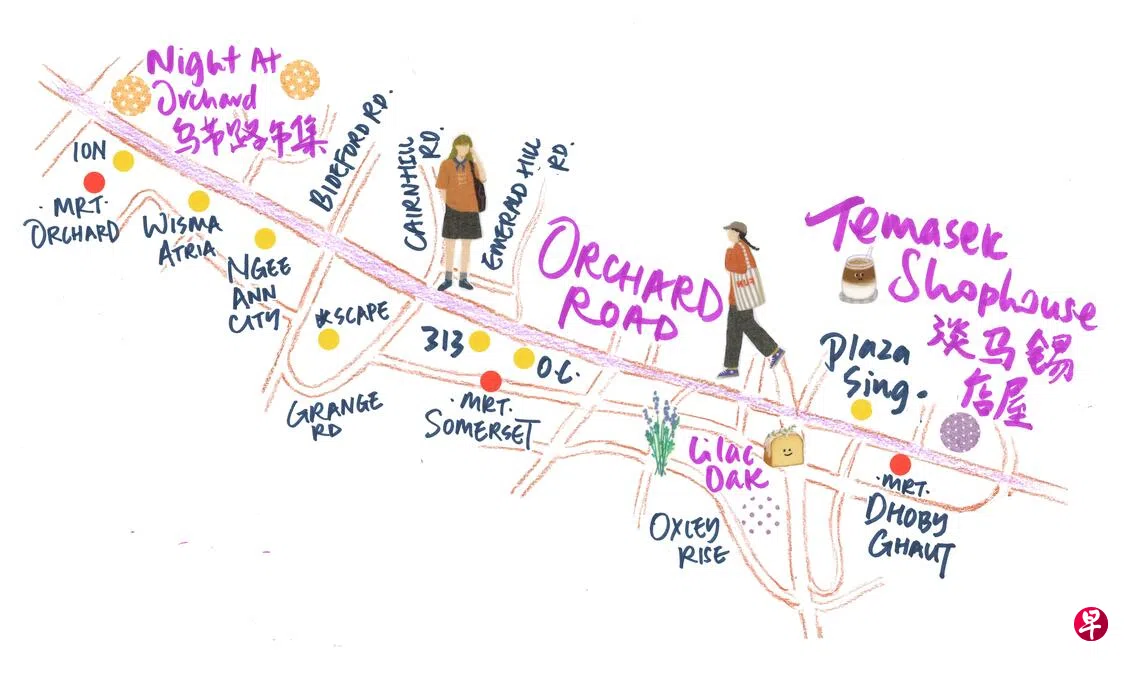 Night At
Orchard
乌节路市集
ION
·MRT·
ORCHARD
WISMA
ATRIA
NGEE
ANN
CITY
BIDEFORD RD.
CAIRNHILL
RD.
EMERALD HILL
RD.
*SCAPE
313
O.C.
GRANGE
RD
·MRT.
SOMERSET
ORCHARD
ROAD
Temasek
Shophouse
淡马锡
店屋
Plaza
Sing.
Lilac
Oak
OXLEY
RISE
·MRT.
DHOBY
GHAUT
早